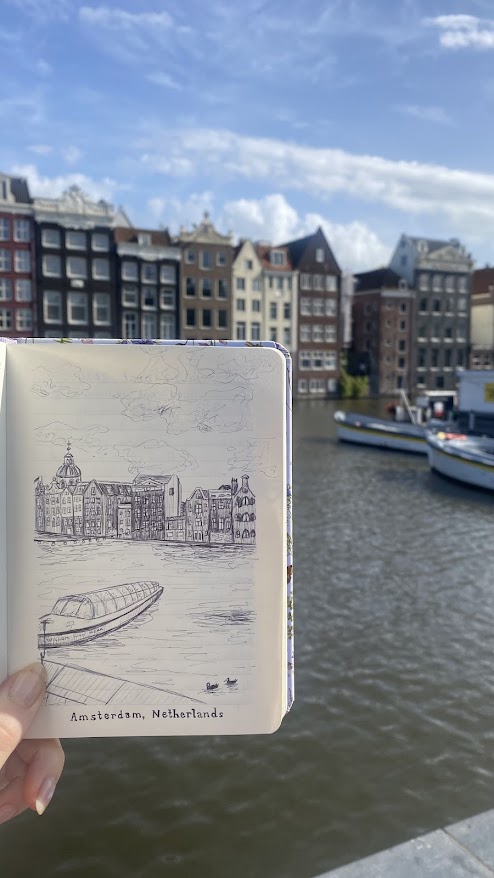 Amsterdam, Netherlands